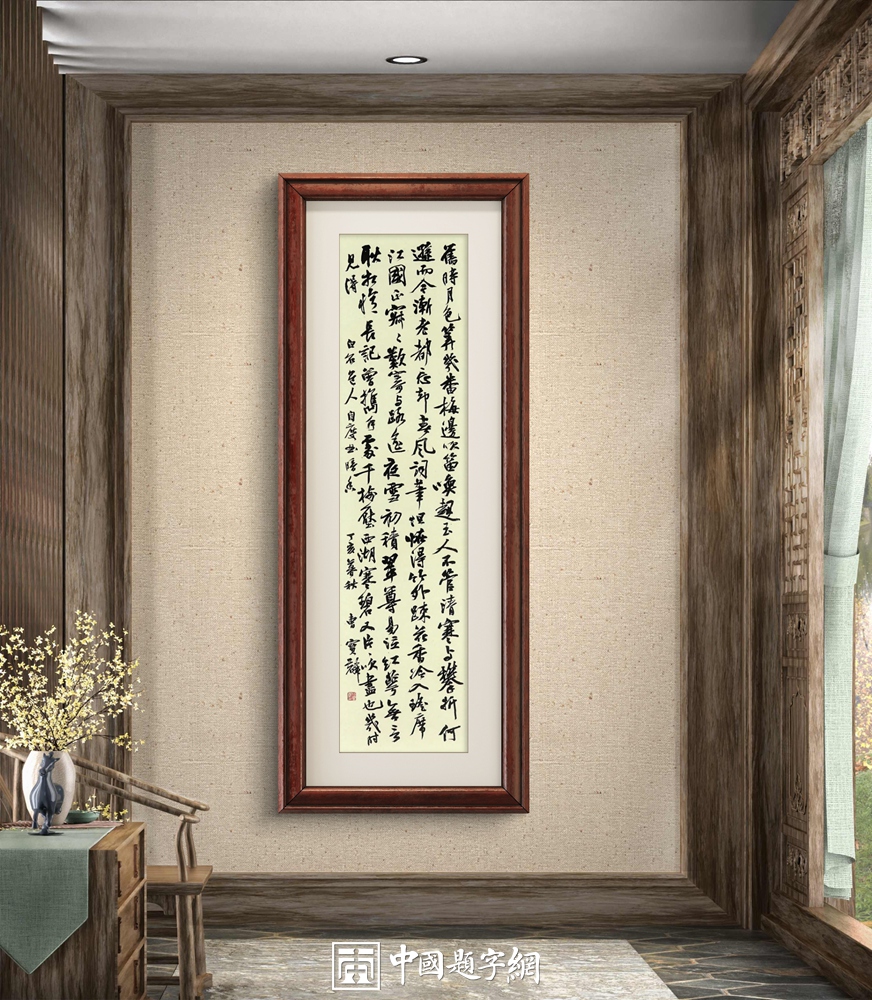 舊時月色算幾番梅邊吹笛喚起玉人不管清寒与攀折何
遜而今漸老都忘却春風詞筆但怪得竹外疎花香冷入瑤席
江國正寂々歎寄与路遙夜雪初積翠尊易泣紅萼無言
耿相憶長記曾攜手處千樹壓西湖寒碧又片吹盡也幾時
見得 白石道人自度曲暗香 丁亥暮秋 曹寶麟
中國題字網